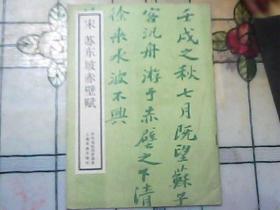 宋 苏东坡赤壁赋
壬戌之秋七月既望蘇子與
客汎舟游于赤壁之下清風
徐來水波不興